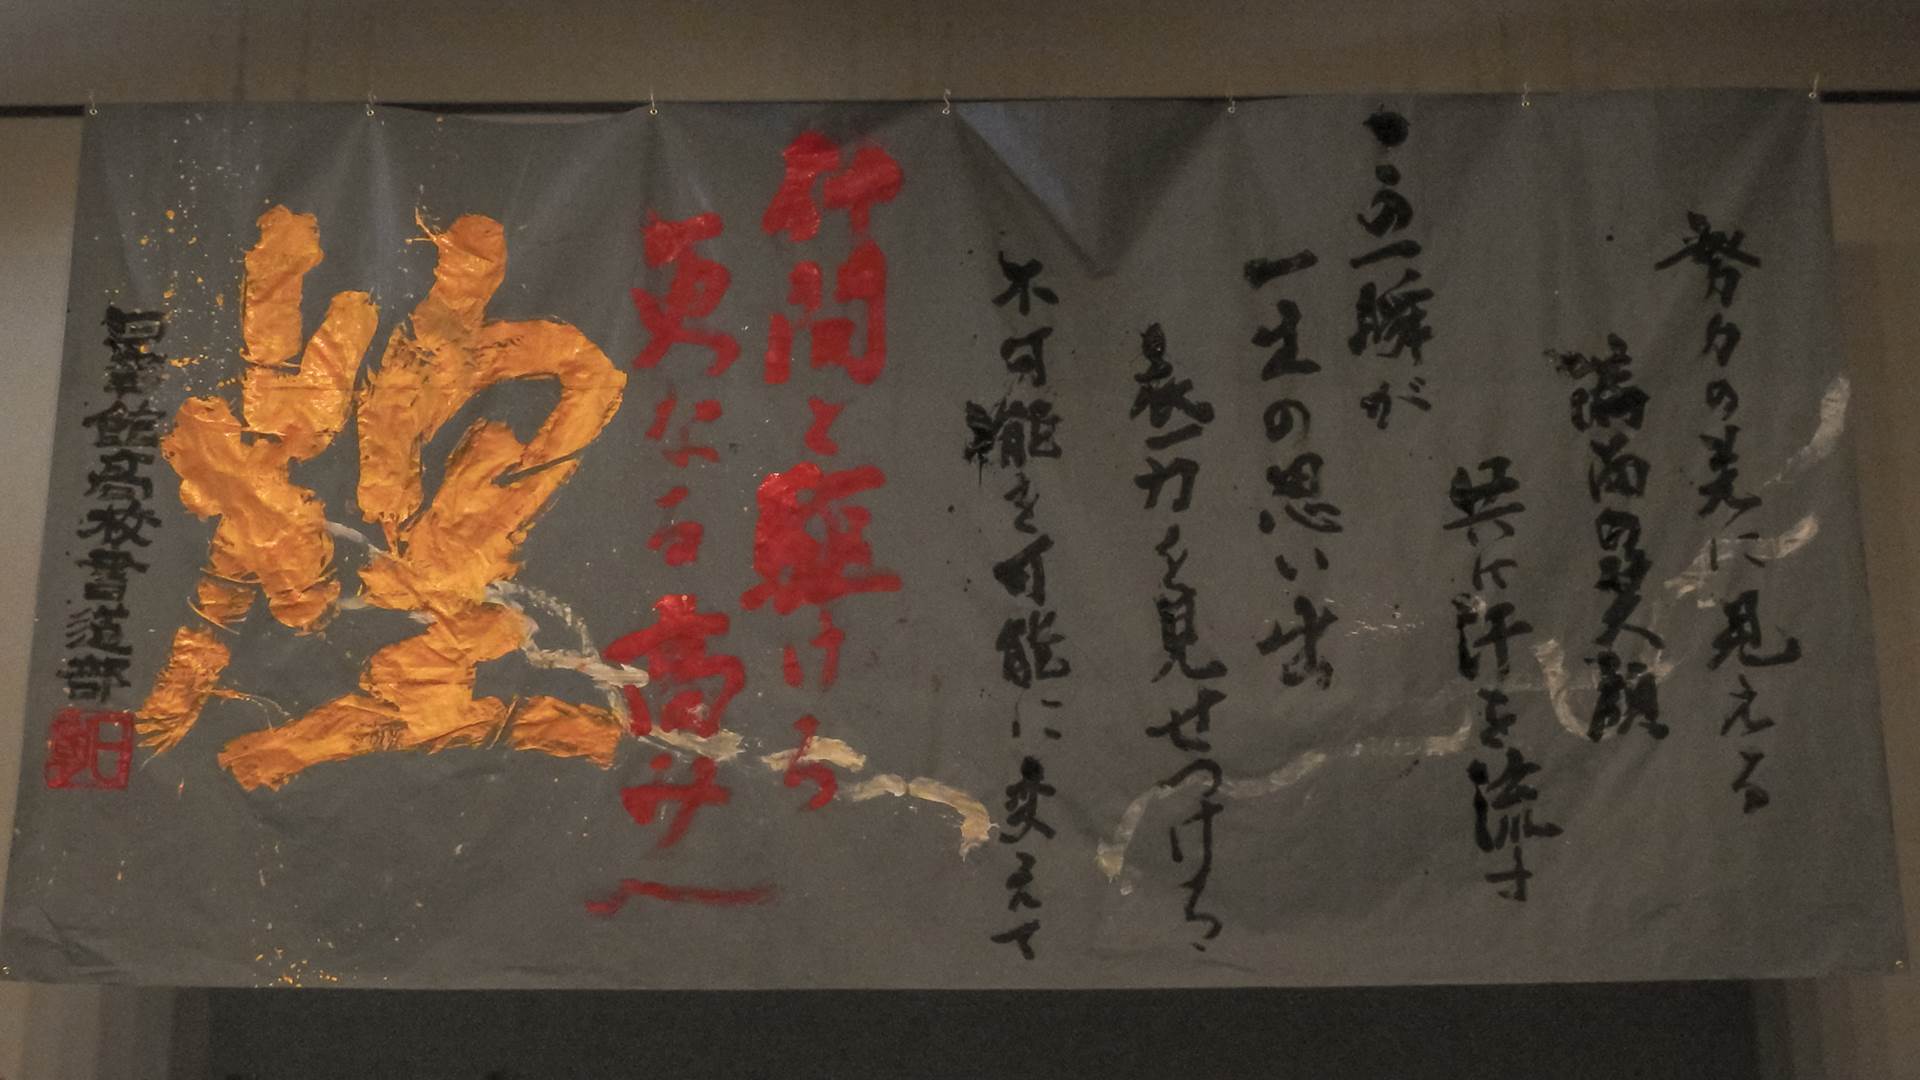 努力の先に見える
満面の笑顔
共に汗を流す
この一瞬が
一生の思い出
底力を見せつけろ
不可能を可能に変えて
仲間と駆けろ
更なる高みへ
煌
館高校書道部